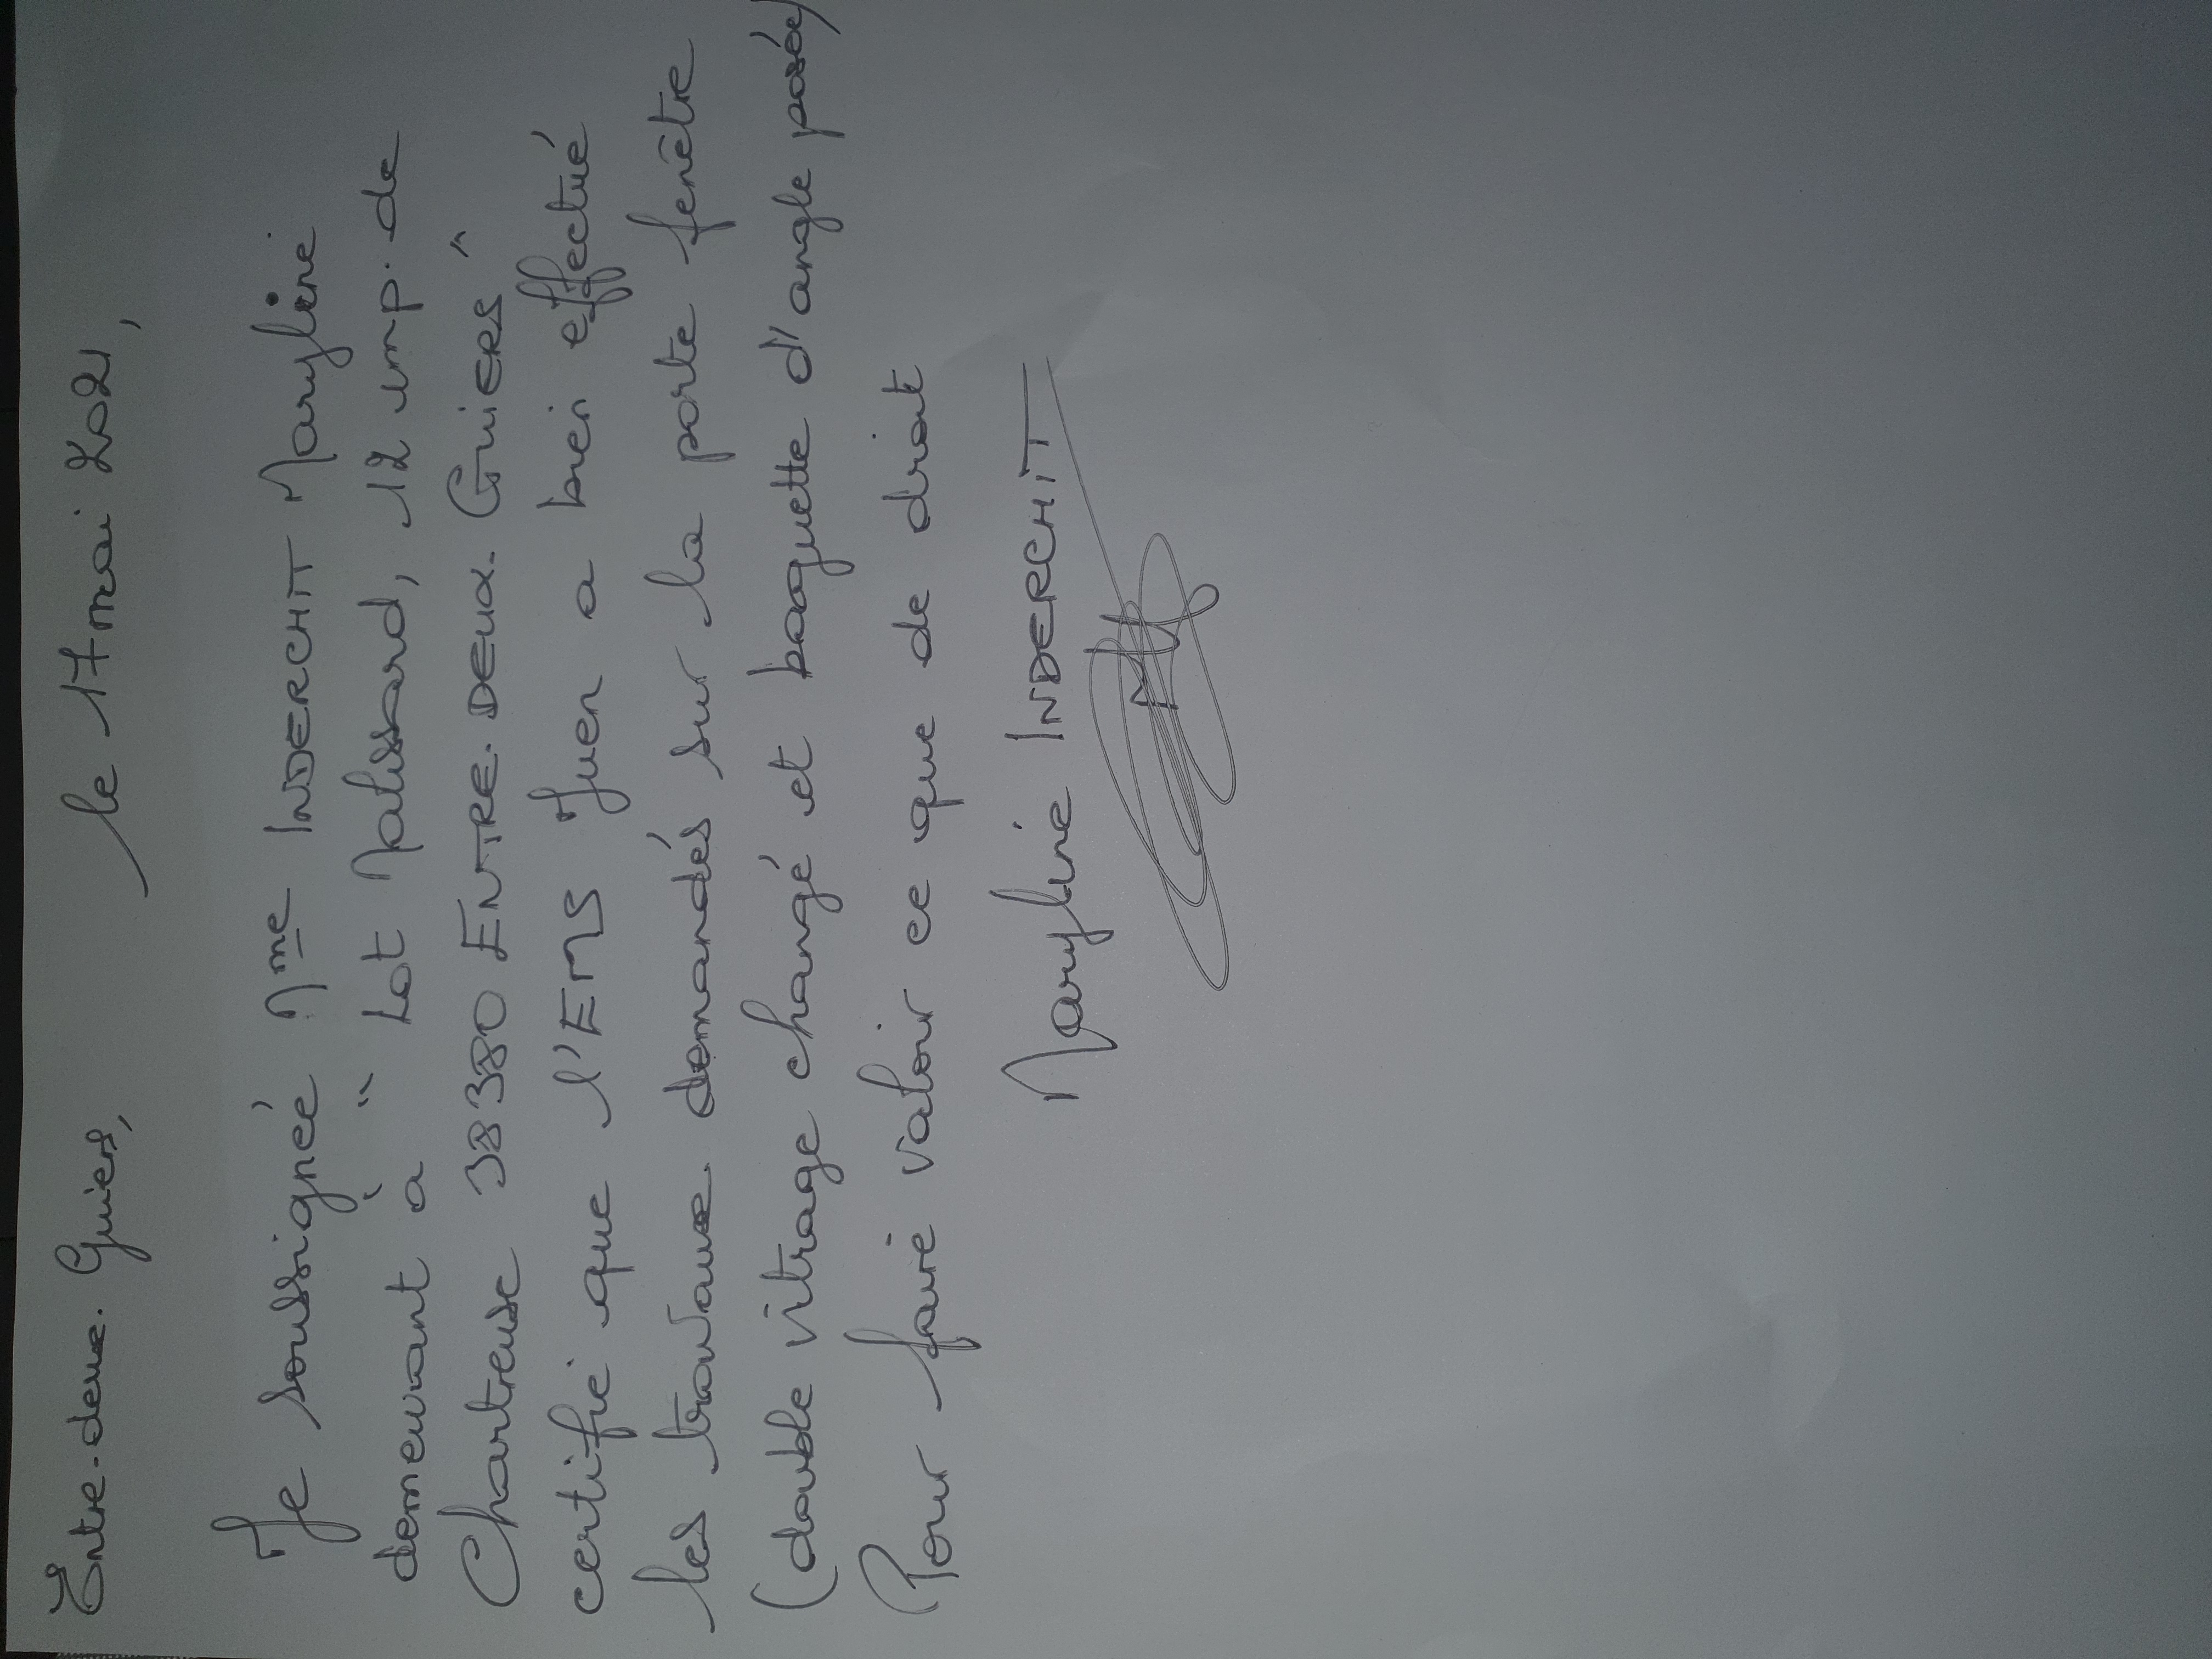 Entre-deux-Guiers, le 17 mai 2021,
Je soussignée Mme INDERCHIT Maryline
demeurant à " Lot Malissard, 12 imp. de
Chartreuse 38380 ENTRE-DEUX-GUIERS "
certifie que l'EMS Juen a bien effectué
les travaux demandés sur la porte fenêtre
(double vitrage changé et baguette d'angle posée)
Pour faire valoir ce que de droit
Maryline INDERCHIT